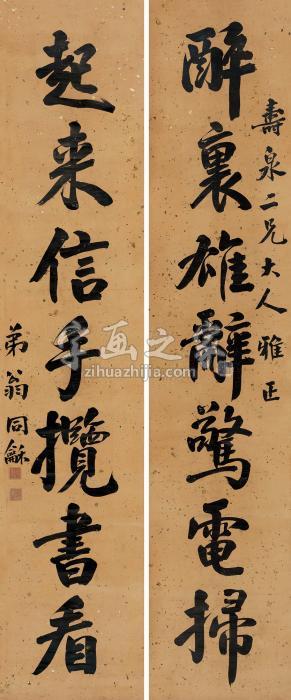 壽泉二兄大人雅正
醉裏雄辭驚電掃
起来信手攬書看
弟翁同龢
字画之家
zihuazhijia.com